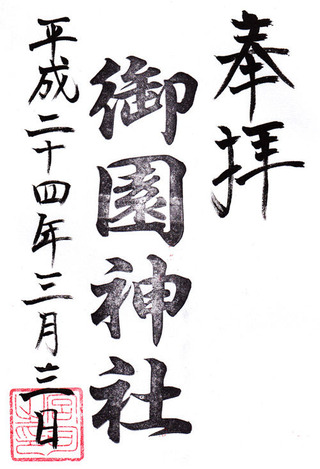 奉拝
御園神社
平成二十四年三月三日